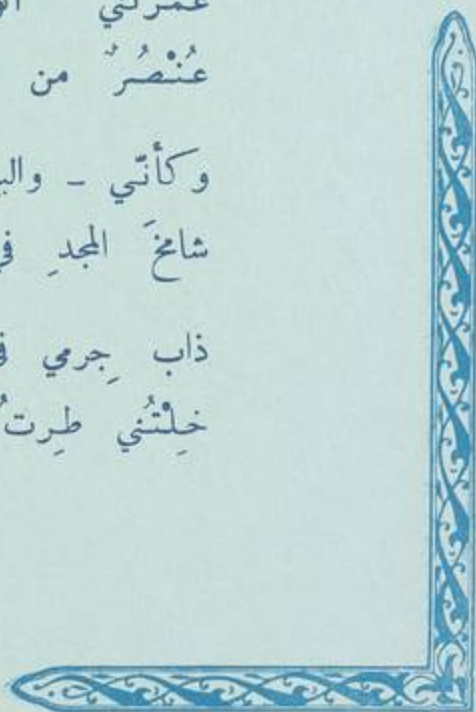 غمرتني
عُنْصُرٌ من
وكأنّي - والب
شامخَ المجدِ في
ذاب جِرمي ف
خِلْتُني طِرتُ